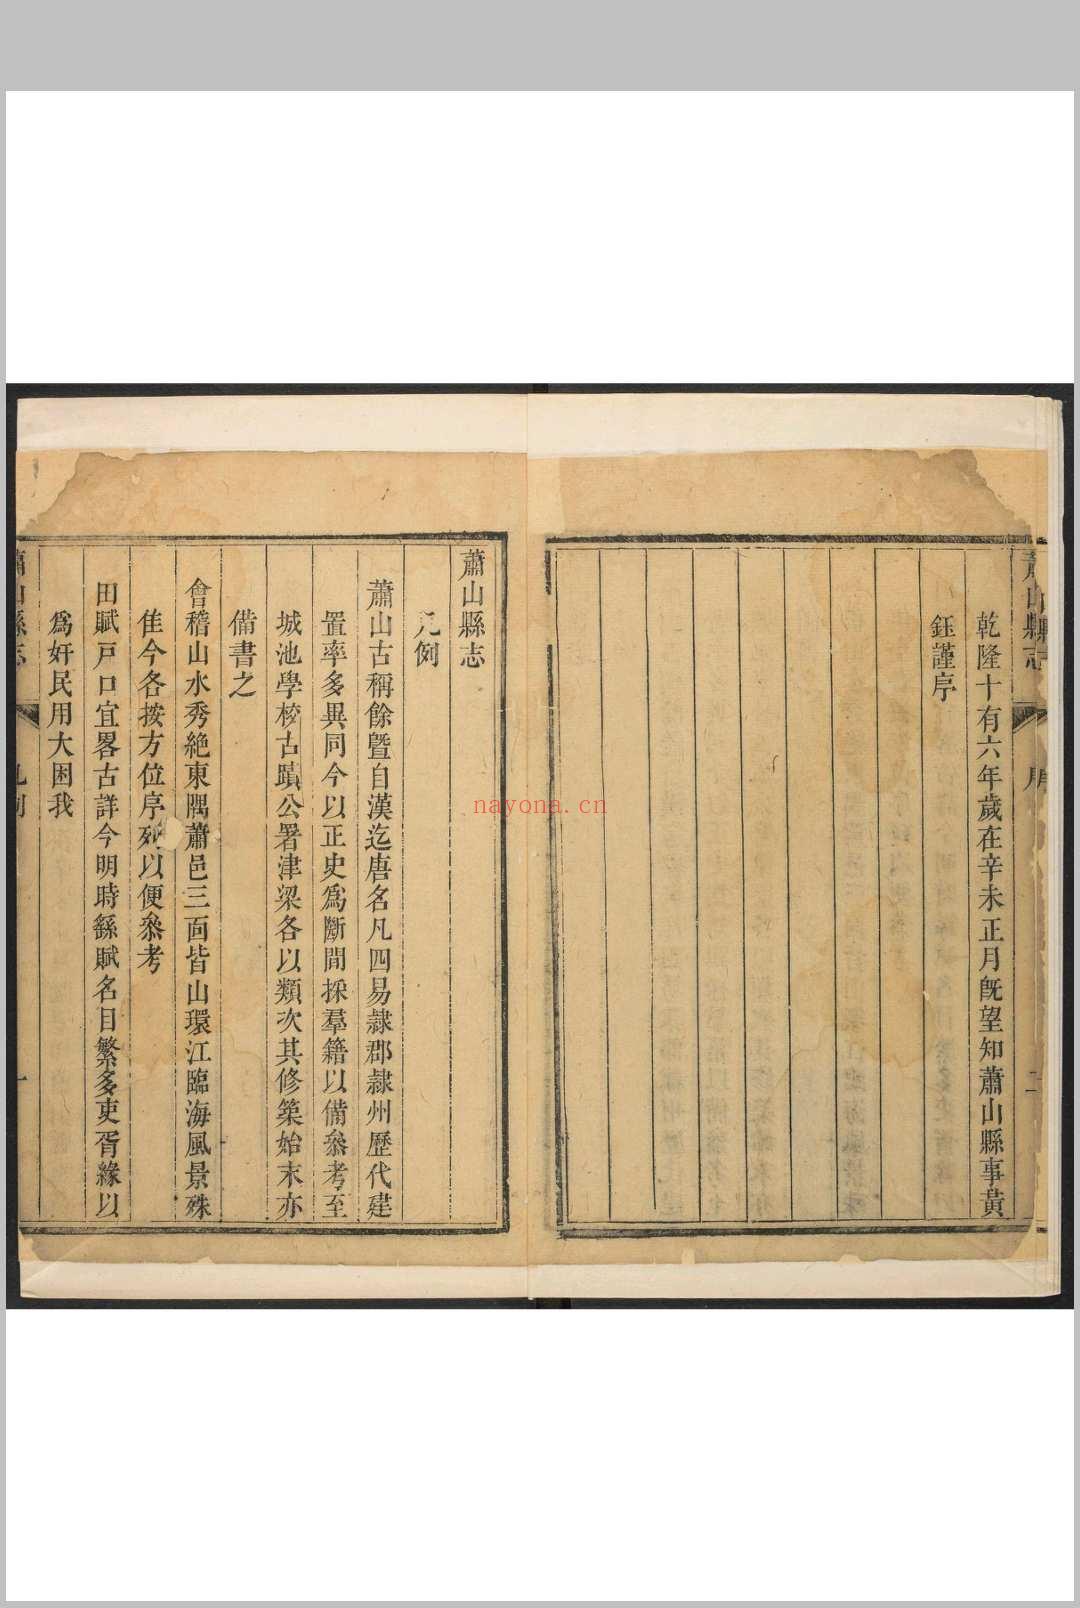 蕭山縣志
序
二
乾隆十有六年歲在辛未正月旣望知蕭山縣事黃
鈺謹序
蕭山縣志
凡例
蕭山古稱餘曁自漢迄唐名凡四易隷郡隷州歷代建
置率多異同今以正史爲斷間採羣籍以備叅考至
城池學校古蹟公署津梁各以類次其修築始末亦
備書之
會稽山水秀絶東隅蕭邑三面皆山環江臨海風景殊
佳今各按方位序列以便叅考
田賦戸口宜畧古詳今明時繇賦名目繁多吏胥緣以
爲奸民用大困我
蕭山縣志
凡例
一
nayona.cn